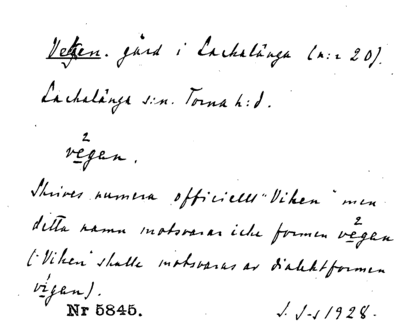 Vegen. gård i Lackalänga (n:r 20).
Lackalänga s:n. Torna h:d.
2
vegan.
Skrives numera officiellt "Viken" men
detta namn motsvarar icke formen 2vegan
("Viken" skulle motsvaras av dialektformen
vigan).
Nr 5845. J. S-s 1928.